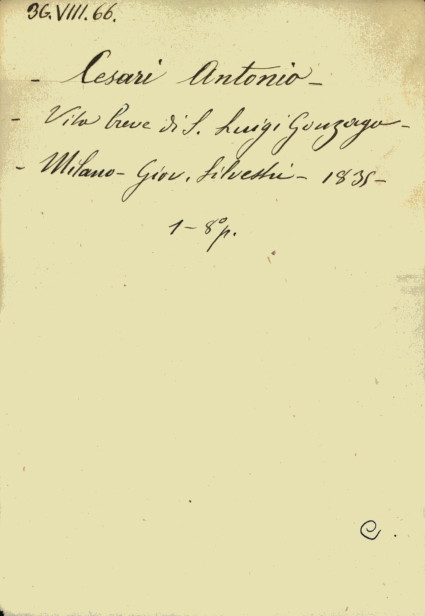 36.VIII.66.
- Cesari Antonio -
- Vita breve di S. Luigi Gonzaga -
- Milano - Giov. Silvestri - 1835 -
1 - 8° p.
C.